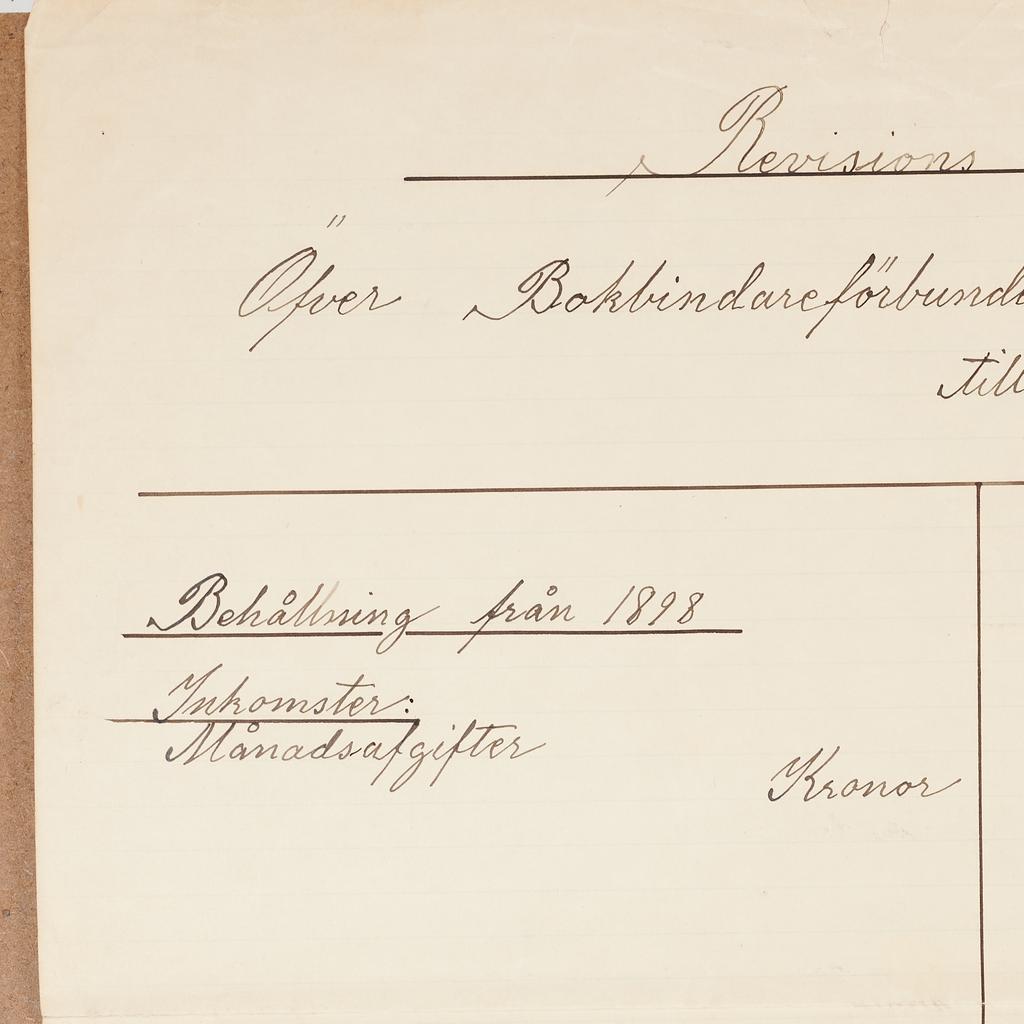 Revisions
Öfver Bokbindareförbunde
till
Behållning från 1898
Inkomster:
Månadsafgifter
Kronor